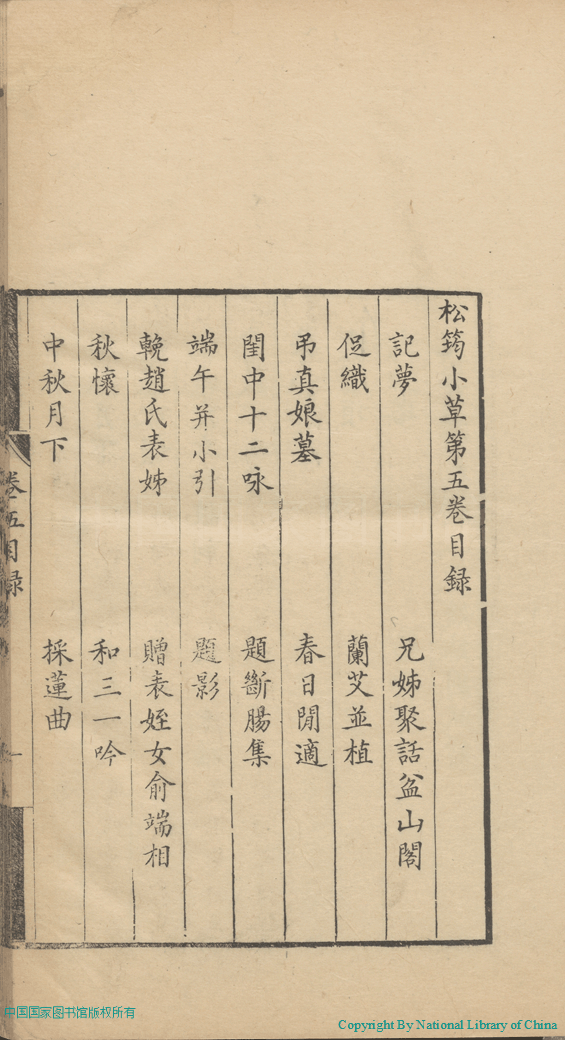 松筠小草第五卷目録
記夢　兄姊聚話盆山閣
促織　蘭艾並植
弔真娘墓　春日閒適
閨中十二咏　題斷腸集
端午并小引　題影
輓趙氏表姊　贈表姪女俞端相
秋懷　和三一吟
中秋月下　採蓮曲
卷五目録
一
中国国家图书馆版权所有
Copyright By National Library of China